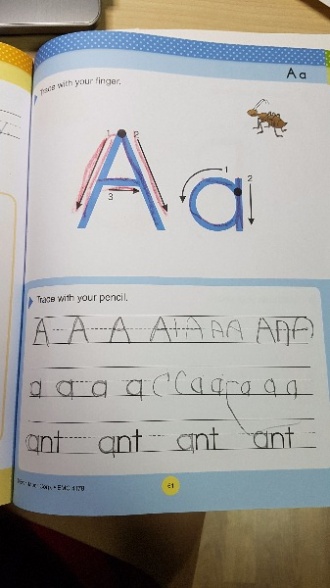 Aa
Trace with your finger.
1 2
A a
3
1
2
Trace with your pencil.
A A A A A A A A A
a a a a c c a a a a a
ant ant ant ant
61